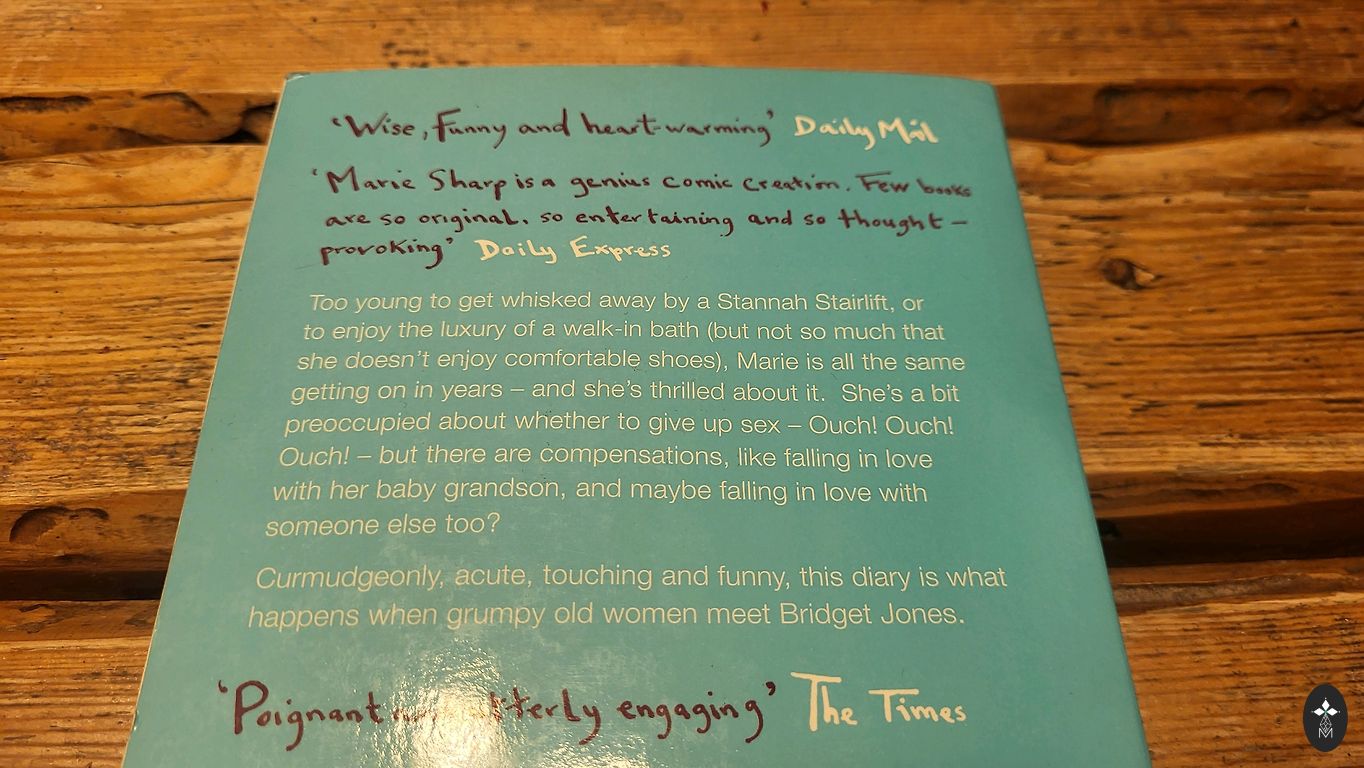 ‘Wise, funny and heart-warming’ Daily Mail
‘Marie Sharp is a genius comic creation. Few books
are so original, so entertaining and so thought –
provoking’ Daily Express
Too young to get whisked away by a Stannah Stairlift, or
to enjoy the luxury of a walk-in bath (but not so much that
she doesn’t enjoy comfortable shoes), Marie is all the same
getting on in years – and she’s thrilled about it.  She’s a bit
preoccupied about whether to give up sex – Ouch! Ouch!
Ouch! – but there are compensations, like falling in love
with her baby grandson, and maybe falling in love with
someone else too?
Curmudgeonly, acute, touching and funny, this diary is what
happens when grumpy old women meet Bridget Jones.
‘Poignant utterly engaging’ The Times
M